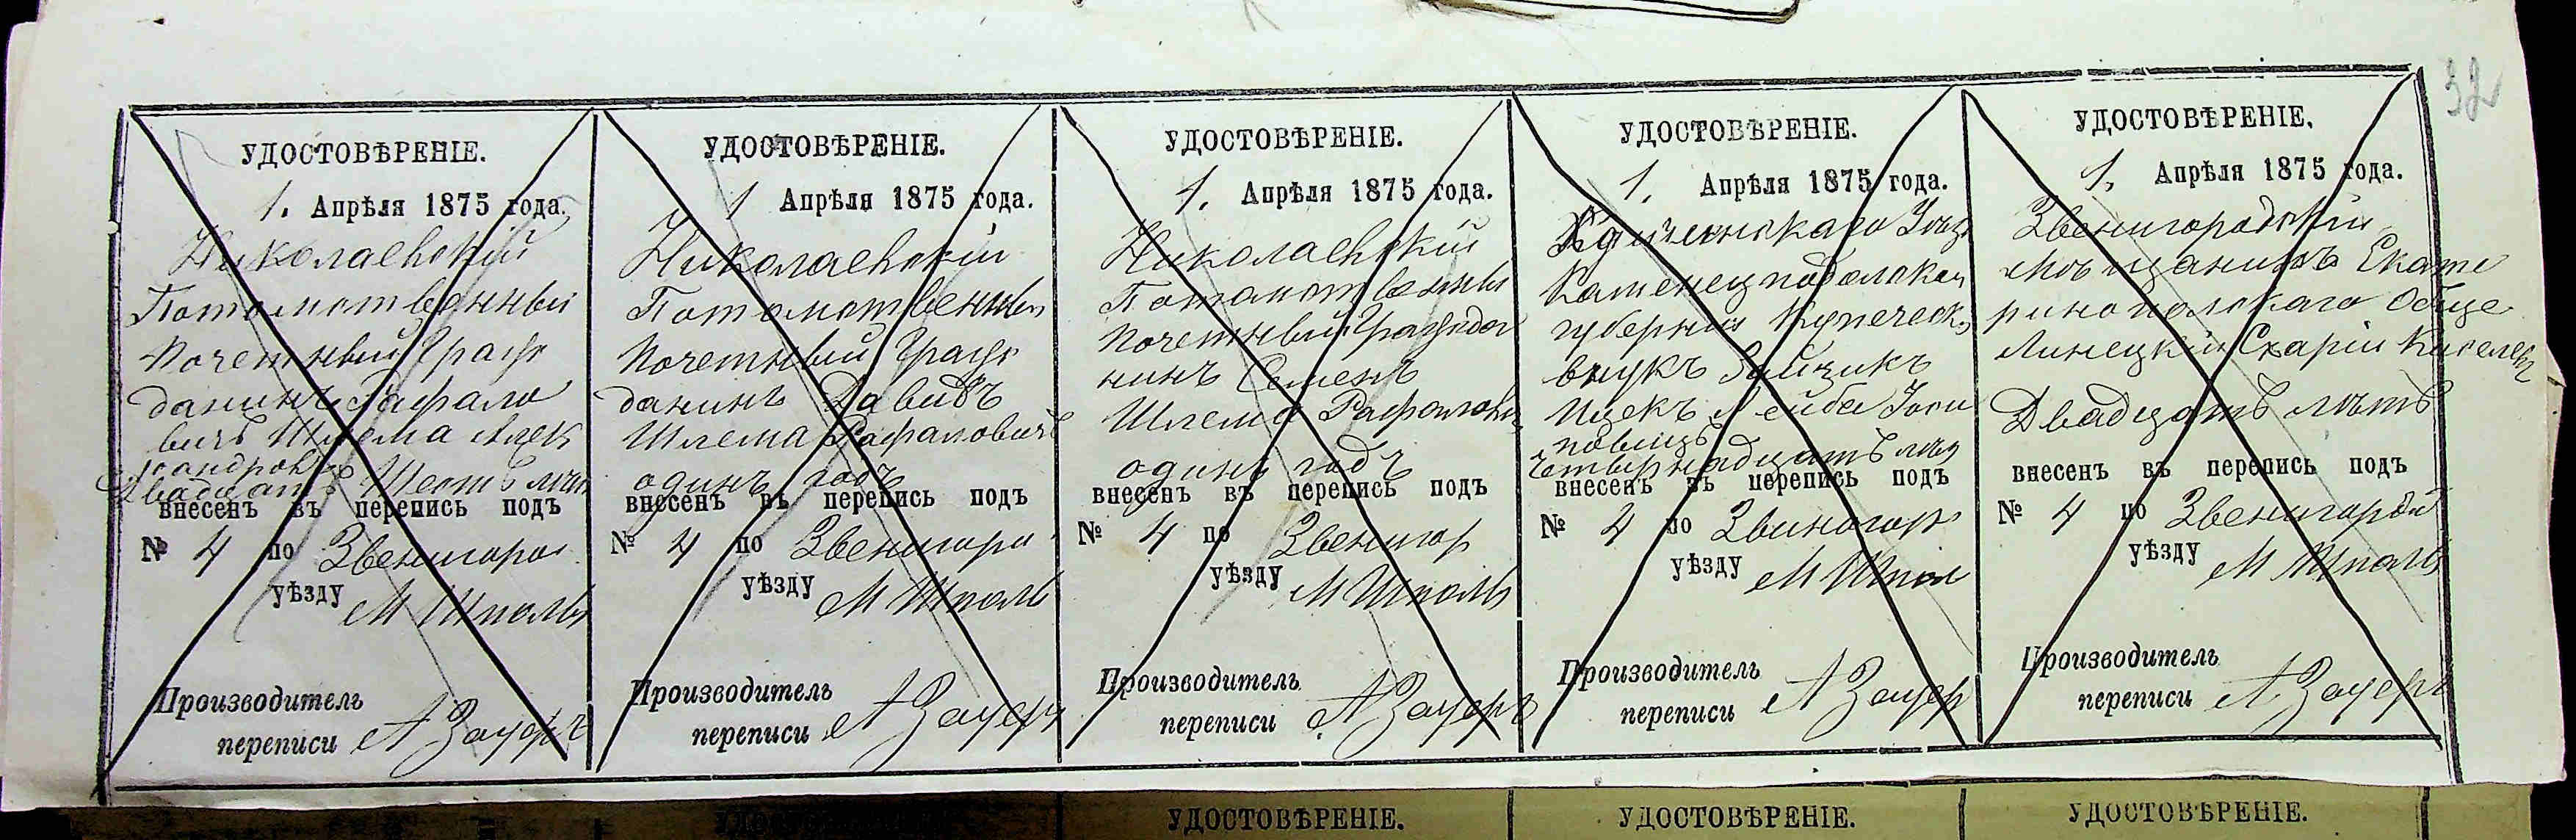 32
УДОСТОВѢРЕНІЕ.
1. Апрѣля 1875 года.
Николаевскій
Потомственный
Почетный Граж
данинъ Рафало
вичъ Шлема Алек
сандровъ
Двадцать Шесть лѣтъ
внесенъ въ перепись подъ
№ 4 по Звенигород
уѣзду М Шполы
Производитель
переписи А Зауеръ
УДОСТОВѢРЕНІЕ.
1 Апрѣля 1875 года.
Николаевскій
Потомственный
Почетный Граж
данинъ Давидъ
Шлема Рафаловичъ
одинъ годъ
внесенъ въ перепись подъ
№ 4 по Звенигоро
уѣзду М Шполы
Производитель
переписи А Зауеръ
УДОСТОВѢРЕНІЕ.
1. Апрѣля 1875 года.
Николаевскій
Потомственны
Почетный Граждо
нинъ Семенъ
Шлема Рафалови
одинъ годъ
внесенъ въ перепись подъ
№ 4 по Звенигор
уѣзду М Шполы
Производитель
переписи А Зауеръ
УДОСТОВѢРЕНІЕ.
1. Апрѣля 1875 года.
Каменецподолской
губерніи Купеческ
внукъ Зайчикъ
Ицекъ Лейба Іоси
повичъ
Четырнадцать лѣт
внесенъ въ перепись подъ
№ 4 по Звиногор
уѣзду М Шпол
Производитель
переписи А Зауер
УДОСТОВѢРЕНІЕ.
1, Апрѣля 1875 года.
Звенигородскій
мѣщанинъ Екате
ринополскаго Обще
Линецкій
Двадцать лѣтъ
внесенъ въ перепись подъ
№ 4 по
уѣзду М Шполы
Производитель
переписи А Зауеръ
УДОСТОВѢРЕНІЕ.
УДОСТОВѢРЕНІЕ.
УДОСТОВѢРЕНІЕ.